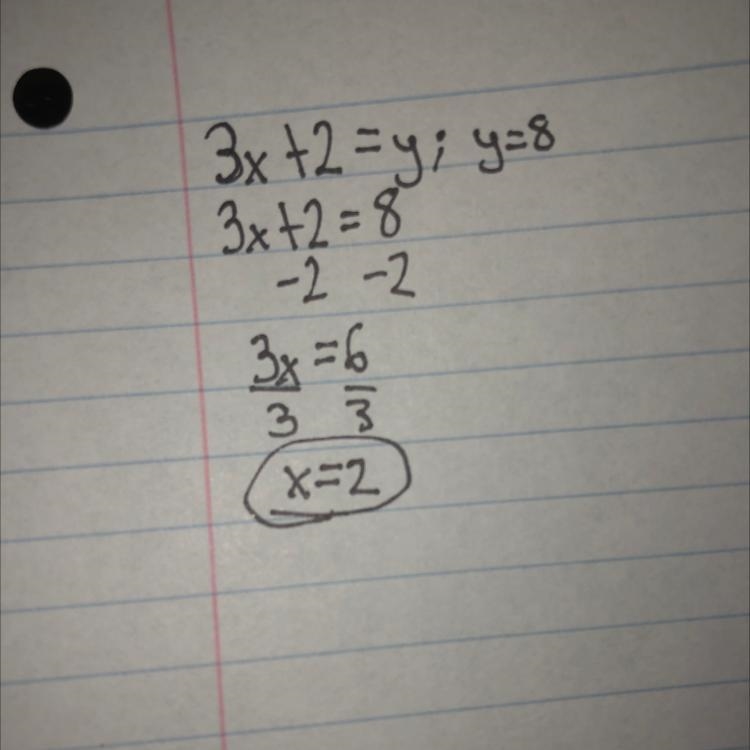 3x+2=y; y=8
3x+2=8
-2 -2
3x=6
3 3
x=2